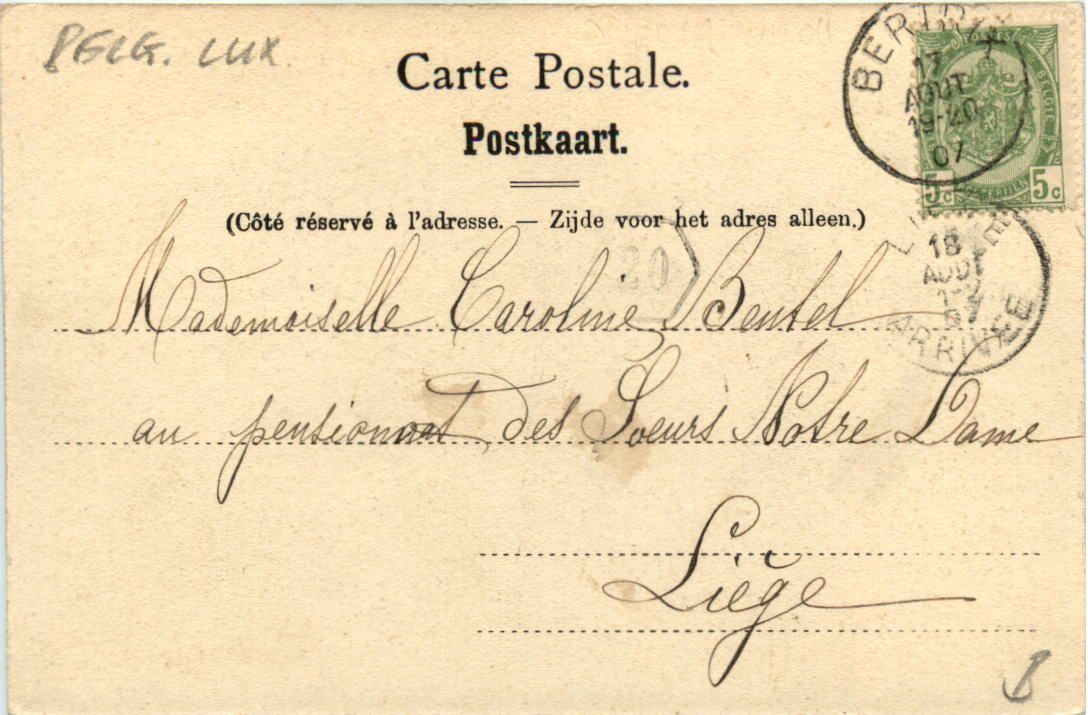 BELG. LUX.
Carte Postale.
Postkaart.
(Côté réservé à l'adresse. — Zijde voor het adres alleen.)
BERTRI
17
AOUT
19-20
07
BELGIE
5c 5c
18
AOUT
07
ARRIVÉE
30
Mademoiselle Caroline Beutel
au pensionnat des Soeurs Notre Dame
Liège